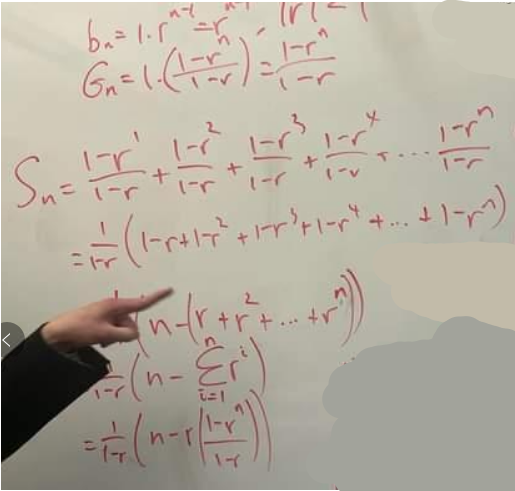 bₙ = 1·rⁿ⁻¹ = rⁿ⁻¹, |r| < 1
Gₙ = 1·((1-rⁿ)/(1-r)) = (1-rⁿ)/(1-r)
Sₙ = (1-r¹)/(1-r) + (1-r²)/(1-r) + (1-r³)/(1-r) + (1-r⁴)/(1-r) + ... (1-rⁿ)/(1-r)
= 1/(1-r) (1-r+1-r²+1-r³+1-r⁴+...+1-rⁿ)
(n-(r+r²+...+rⁿ))
1/(1-r) (n - ∑ⁿᵢ₌₁ rⁱ)
= 1/(1-r) (n-r((1-rⁿ)/(1-r)))